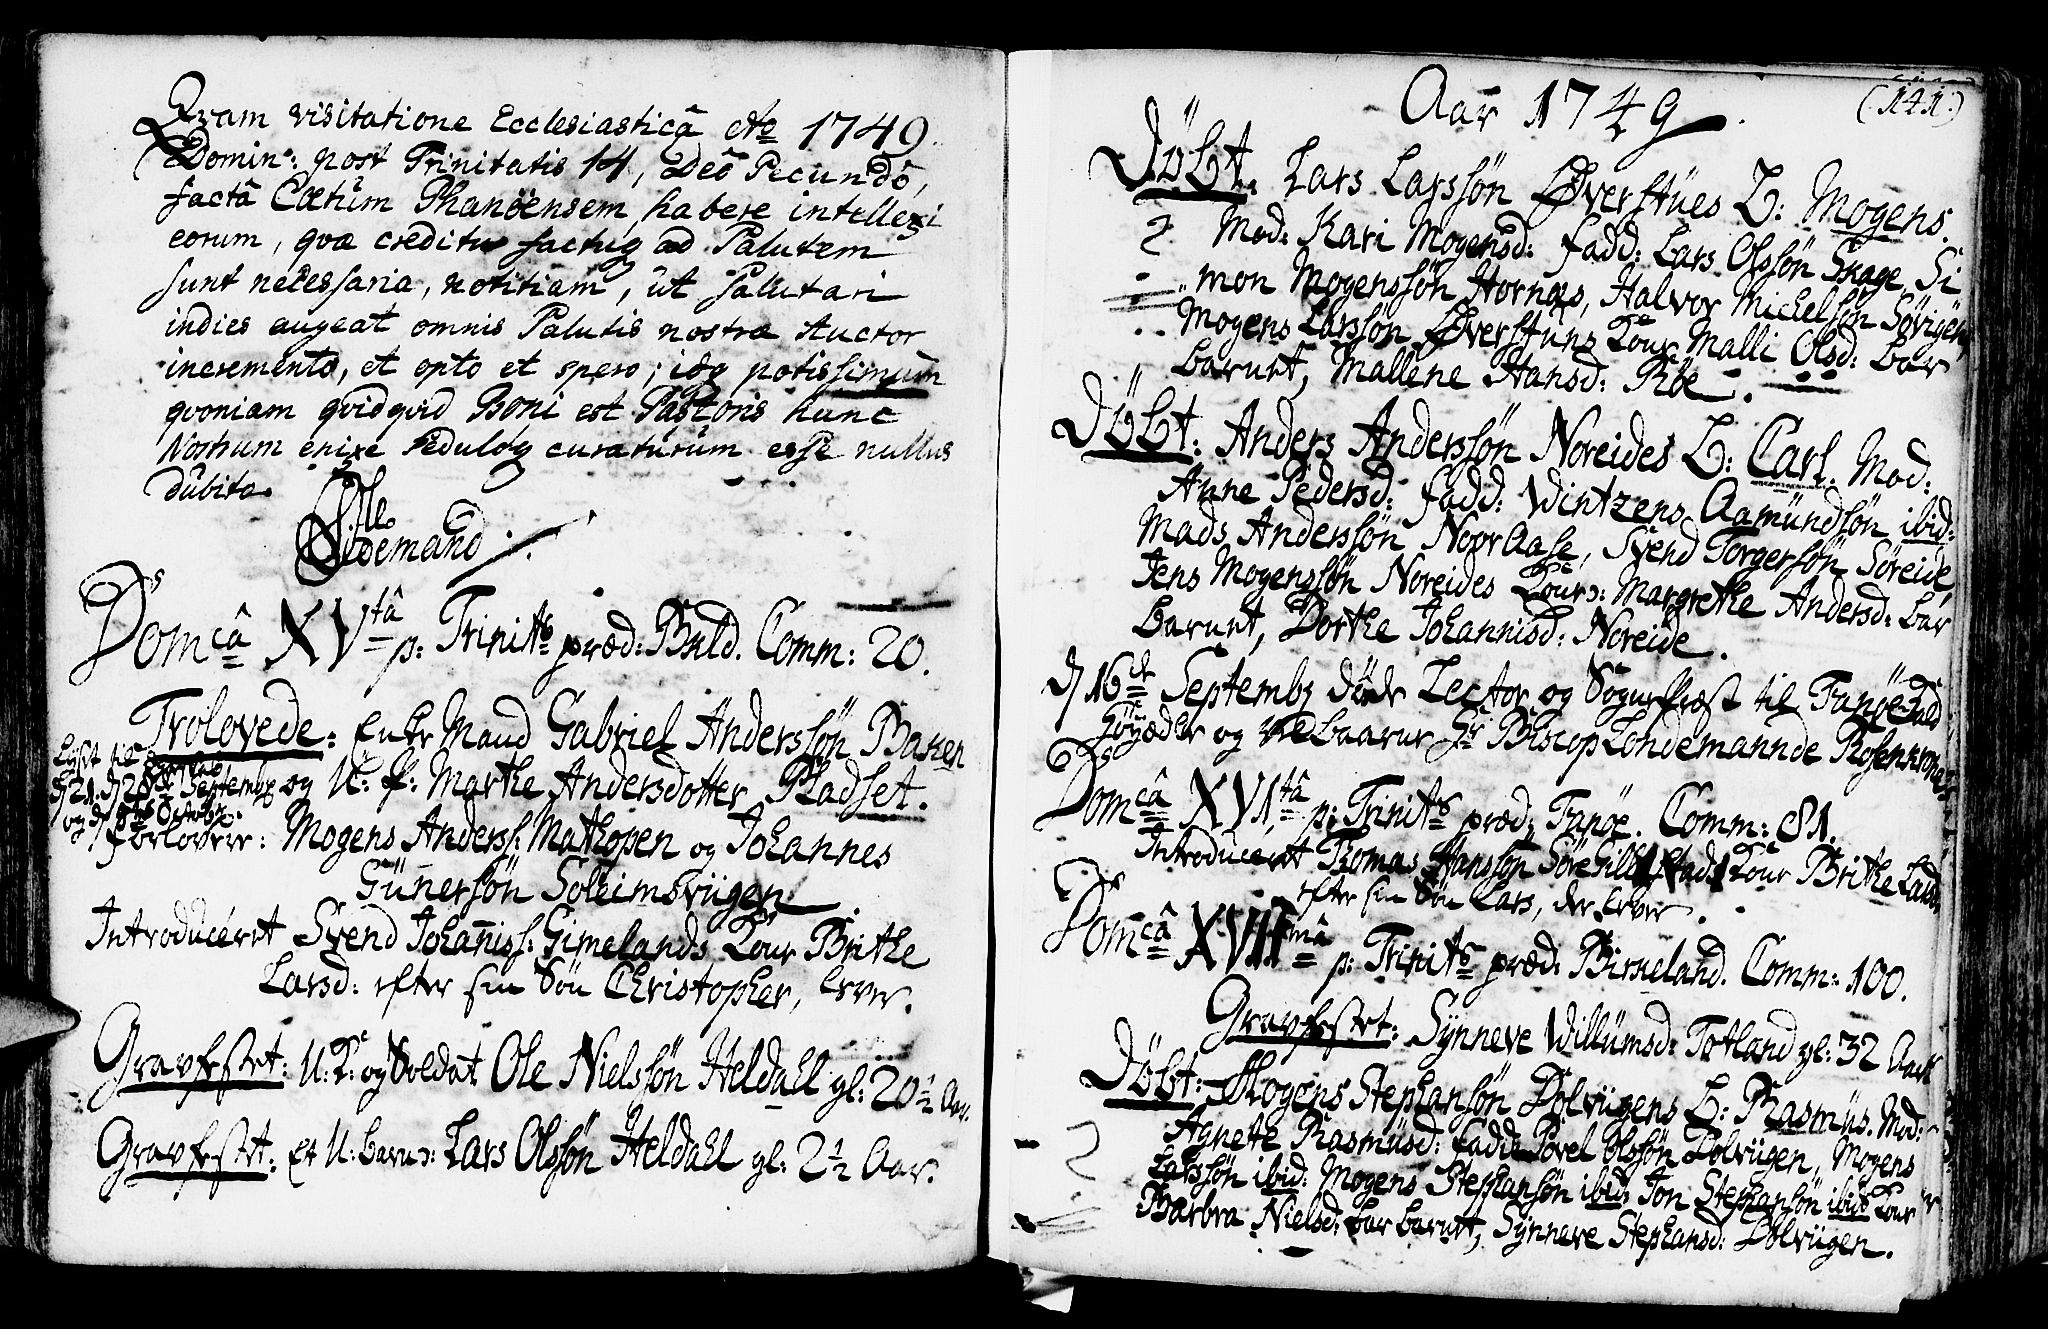 Qvam visitatione Ecclesiasticâ Ao 1749
Domin: post Trinitatis 14, Deô Secundô,
factâ Cœtûm Phanöensem habere intellexi
eorum, qvæ creditu factuq ad Salutem
sunt necessaria, notitiam, ut salutari
indies augeat omnis Salutis nostræ Auctor
incremento, et opto et spero; idq potissimum
qvoniam qvidqvid Boni est Pastoris hunc
Nostrum enixe seduloq curaturum esse nullus
dubito.
Ole
Tidemand
Domcâ XVtâ p: Trinits præd: Bild. Comm: 20.
Trolovede: Enke Mand Gabriel Anderssøn Bakken
og U: P: Marthe Andersdotter Pladset.
Lyst paa
d 21. d 28 Septembr
og d 5te October.
Forlovere: Mogens Anderss: Mathopen og Johannes
Günnersøn Soleimsviigen.
Introduceret Svend Johaniss: Gimelands Kone Brithe
Larsd: efter sin Søn Christopher, lever.
Gravfestet: U: K: og Soldat Ole Nielssøn Heldahl gl: 20 ½ Aar.
Gravfestet: Et U: barn: Lars Olssøn Heldahl gl: 2 ½ Aar.
Aar 1749.
(141.)
Döbt: Lars Larssøn Øverstües B: Mogens.
Mod: Kari Mogensd: Fadd: Lars Olssøn Skage, Si
mon Mogenssøn Hornæs, Halvor Michelsøn Søvigen,
Mogens Larssøn Øverstuns Kone Malli Olsd: bar
barnet, Mallene Hansd: Röe.
Döbt: Anders Anderssøn Noreides B: Carl. Mod:
Anne Pedersd: Fadd: Wintzens Aamündsøn ibid:
Mads Anderssøn Noor Aase, Svend Torgersøn Søreide,
Jens Mogenssøn Noreides Kone: Margrethe Andersd: bar
barnet, Dorthe Johannisd: Noreide.
d 16de Septembr døde Lector og Sognepræst til Fanöe Kald
og velbaarne Hr Biscop Londemannde Rosenkrone
Domcâ XVItâ p: Trinits præd: Fanöe. Comm: 81.
Introduceret Thomas Hanssøn Kone Brithe Larsd:
efter sin Søn Lars, der lever.
Domcâ XVIImâ p: Trinits præd: Birkeland. Comm: 100.
Gravfestet: Synneve Willumsd: Totland gl: 32 Aar
Döbt: Mogens Stephansøn Dolviigens B: Rasmüs. Mod:
Agnete Rasmüsd: Fadd: Povel Olssøn Dolviigen, Mogens
Larssøn ibid: Mogens Stephansøn ibid: Jon Stephansøn ibid: Kone
Barbra Nielsd: bar barnet, Synneve Stephansd: Dolviigen.